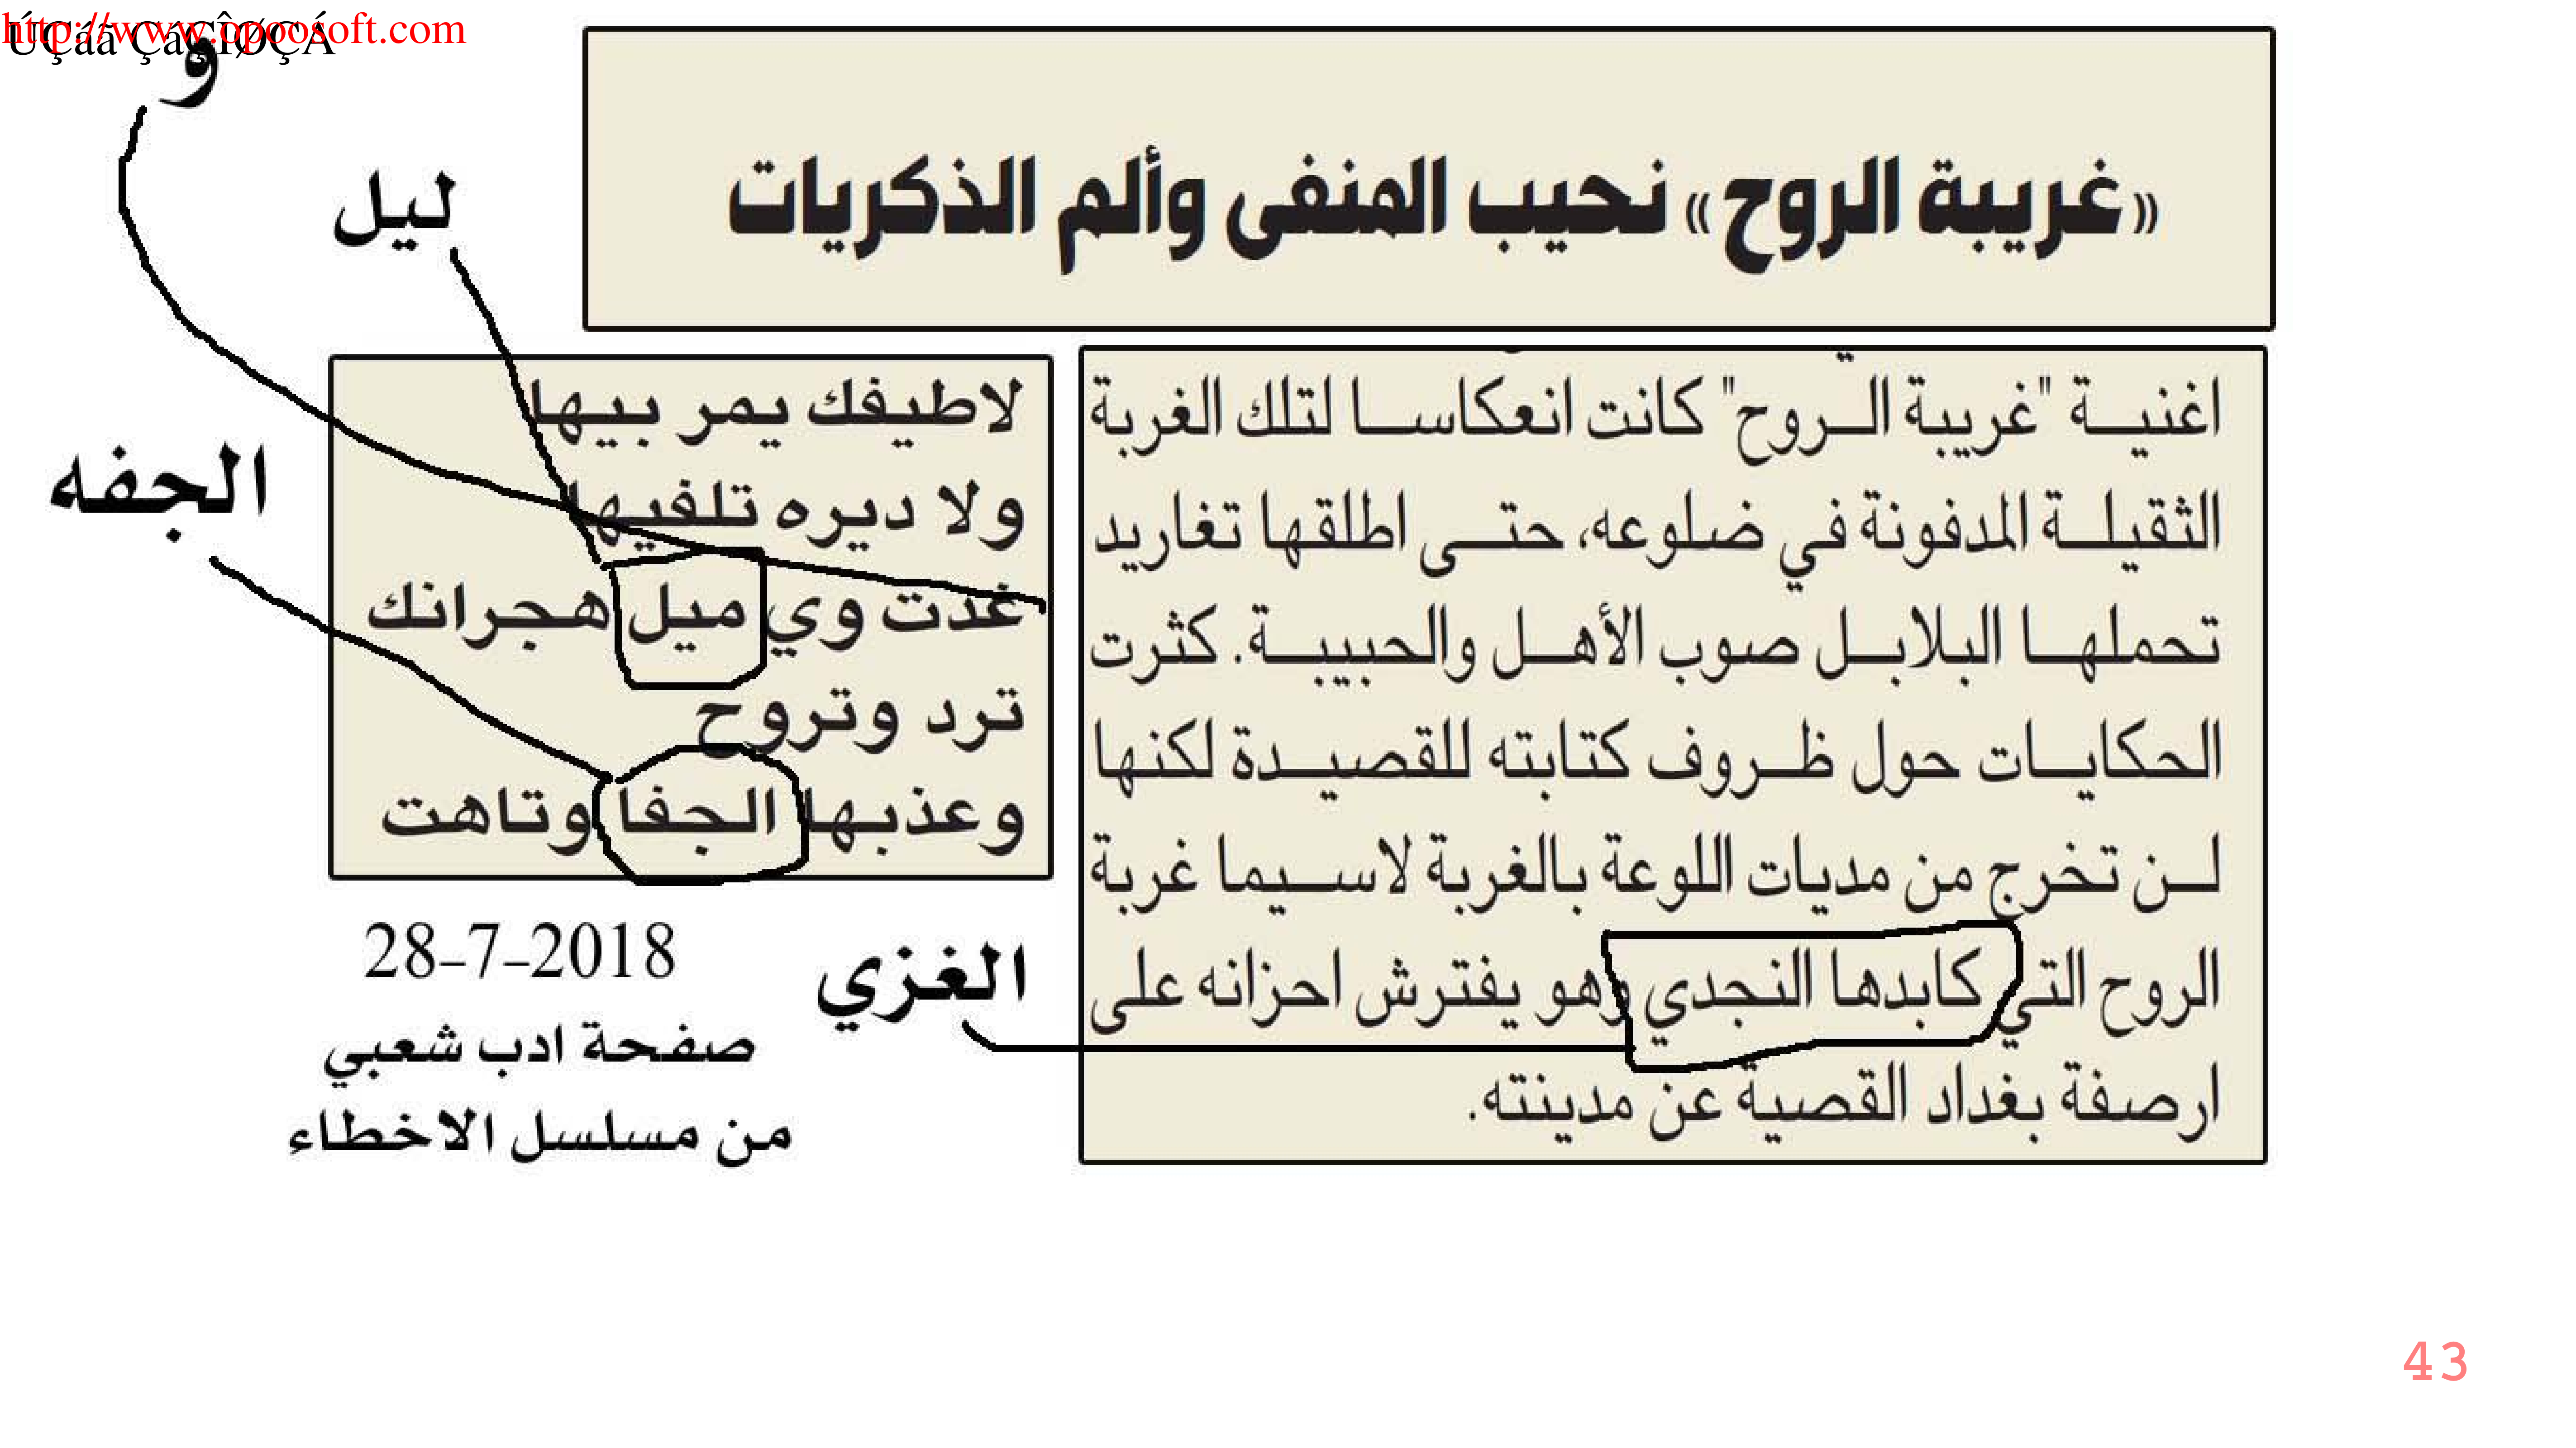 http://www.opoosoft.com
ÚÇáã ÇáÇÎØÇÁ
و
ليل
الجفه
«غريبة الروح» نحيب المنفى وألم الذكريات
اغنيـــة "غريبة الـــروح" كانت انعكاســـا لتلك الغربة
الثقيلـــة المدفونة في ضلوعه، حتـــى اطلقها تغاريد
تحملهـــا البلابـــل صوب الأهـــل والحبيبـــة. كثرت
الحكايـــات حول ظـــروف كتابته للقصيـــدة لكنها
لـــن تخرج من مديات اللوعة بالغربة لاســـيما غربة
الروح التي كابدها النجدي وهو يفترش احزانه على
ارصفة بغداد القصية عن مدينته.
لاطيفك يمر بيها
ولا ديره تلفيها
غدت وي ميل هجرانك
ترد وتروح
وعذبها الجفا وتاهت
الغزي
28-7-2018
صفحة ادب شعبي
من مسلسل الاخطاء
43